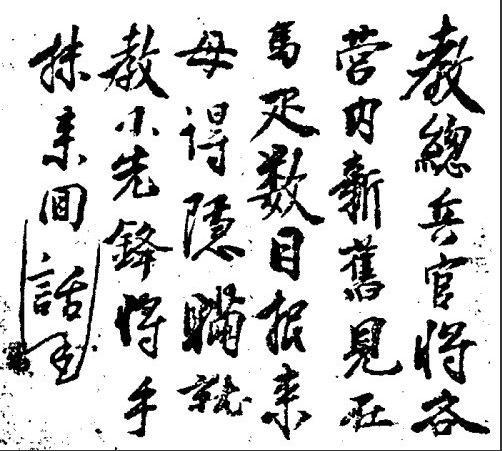 教總兵官將各
营内新舊見在
馬疋数目报来
毋得隱瞞就
教小先鋒将手
抹来回話